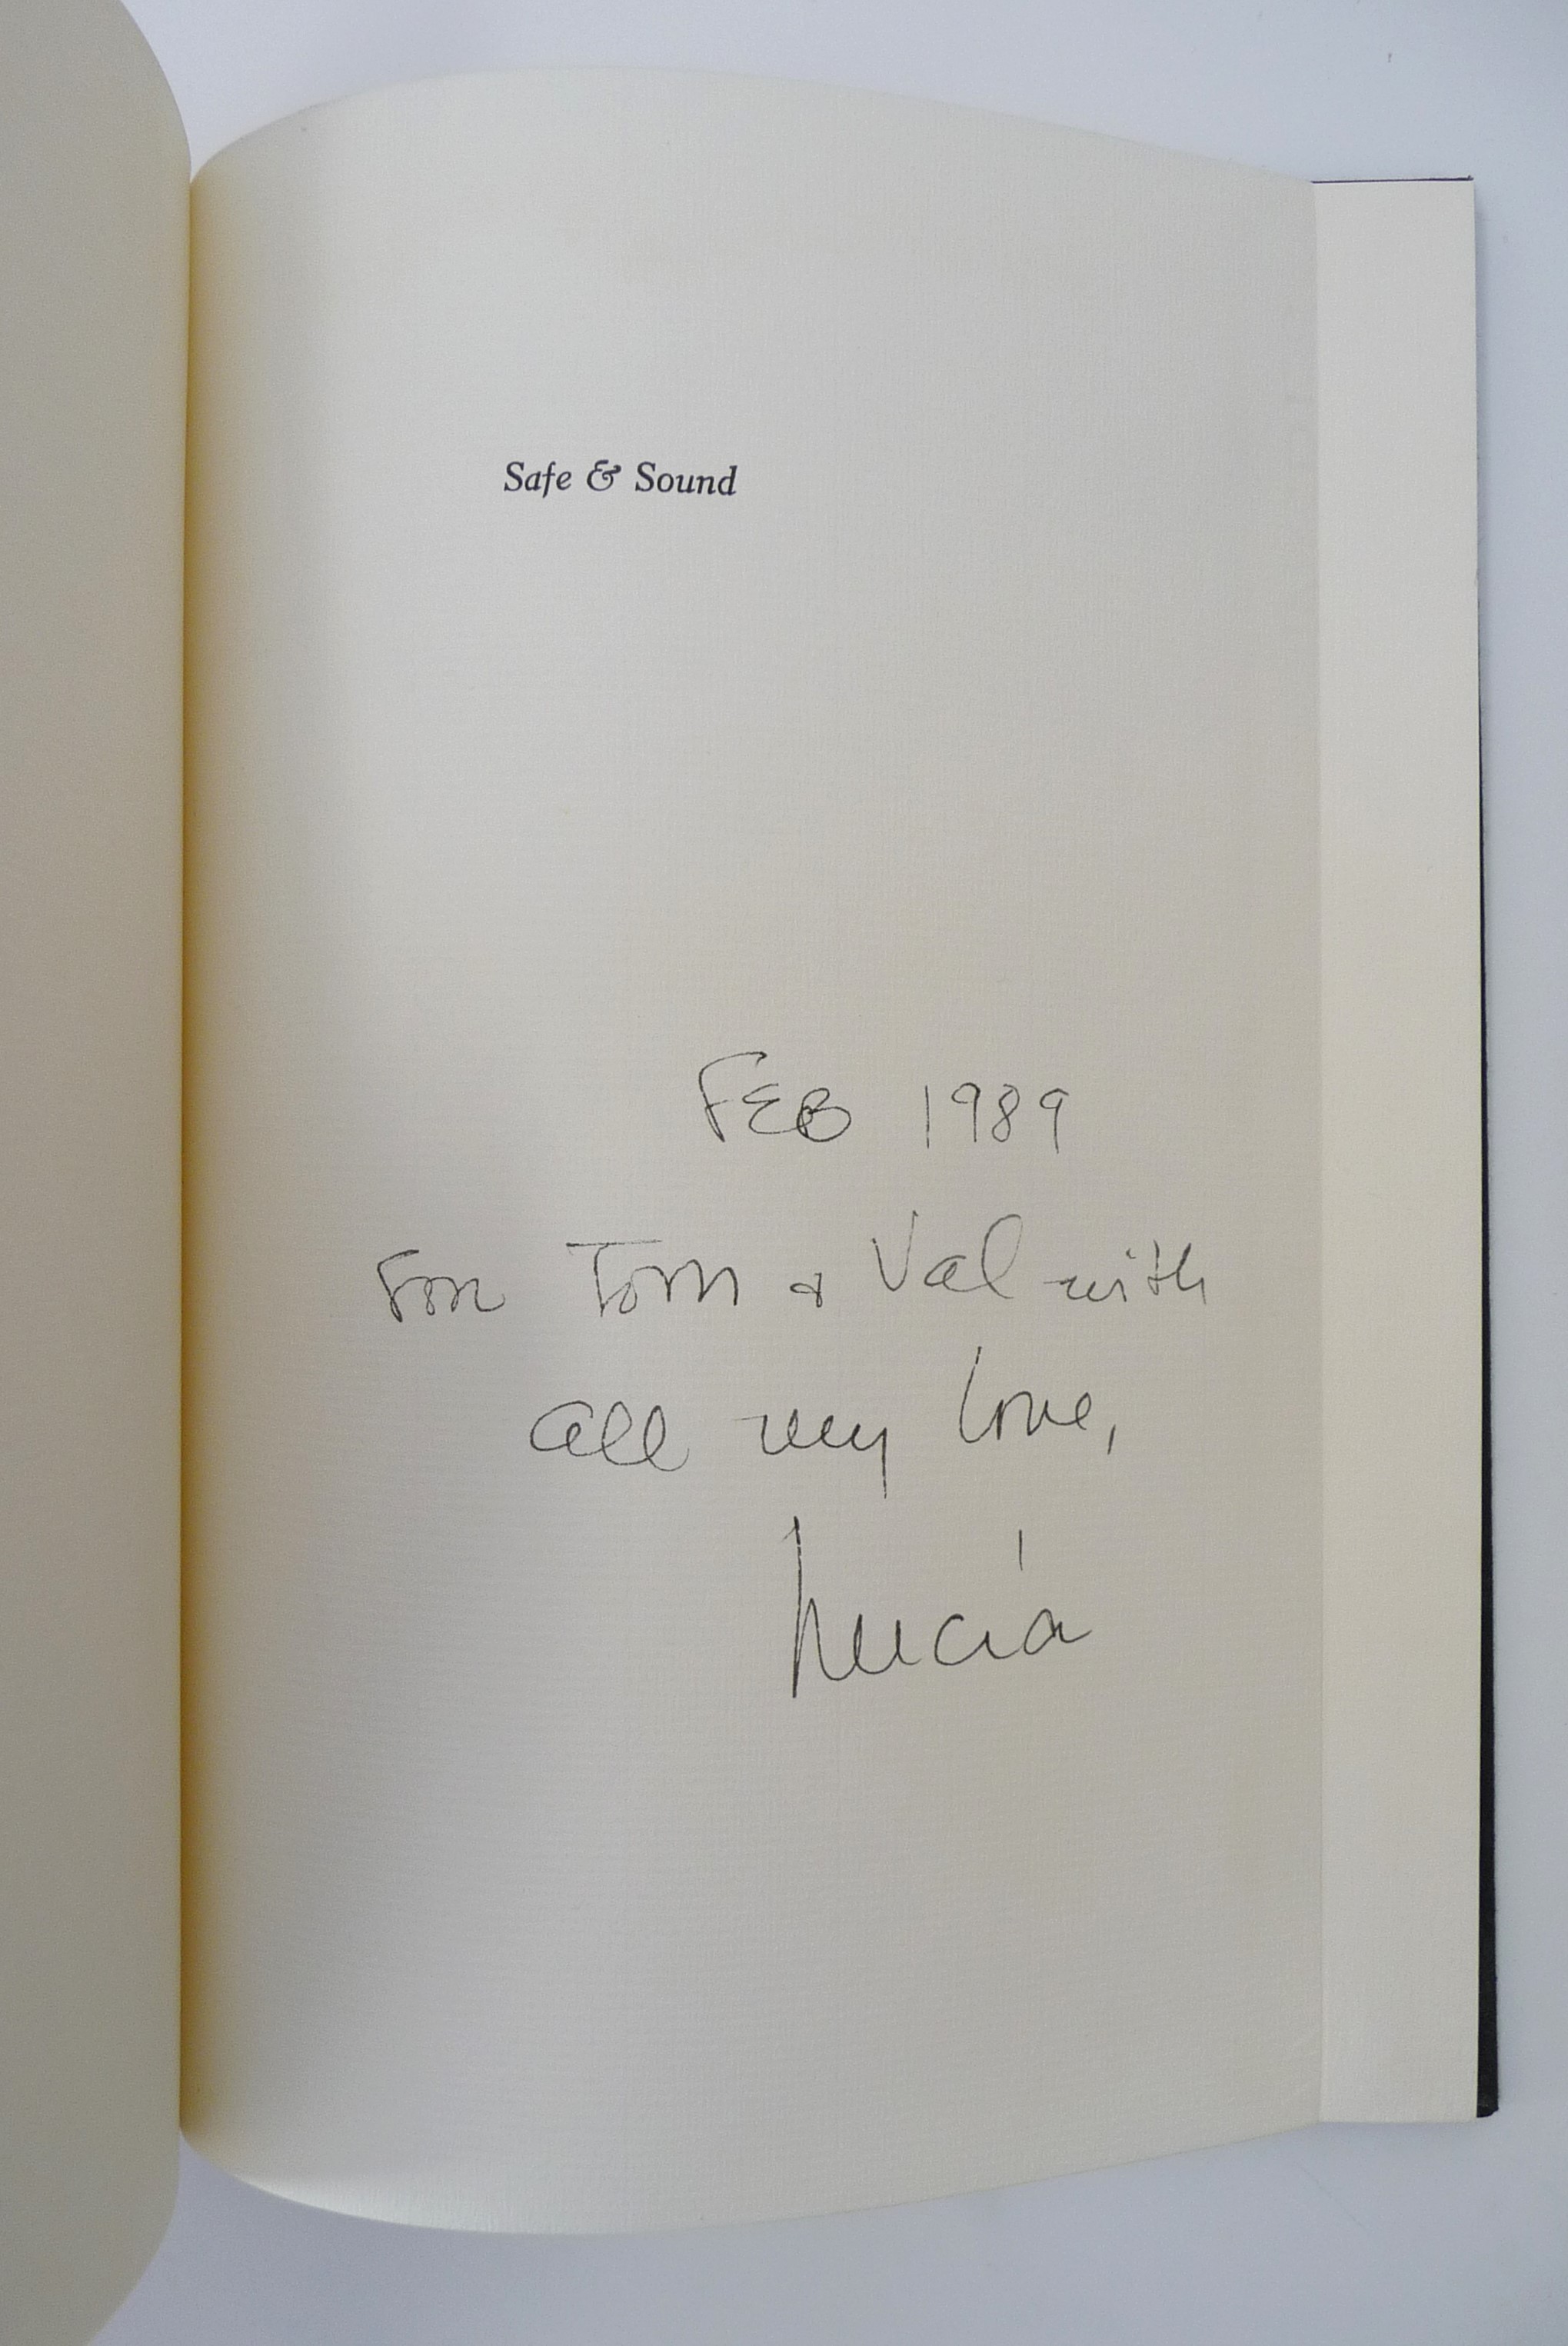 Safe & Sound
FEB 1989
For Tom & Val with
all my love,
Lucia